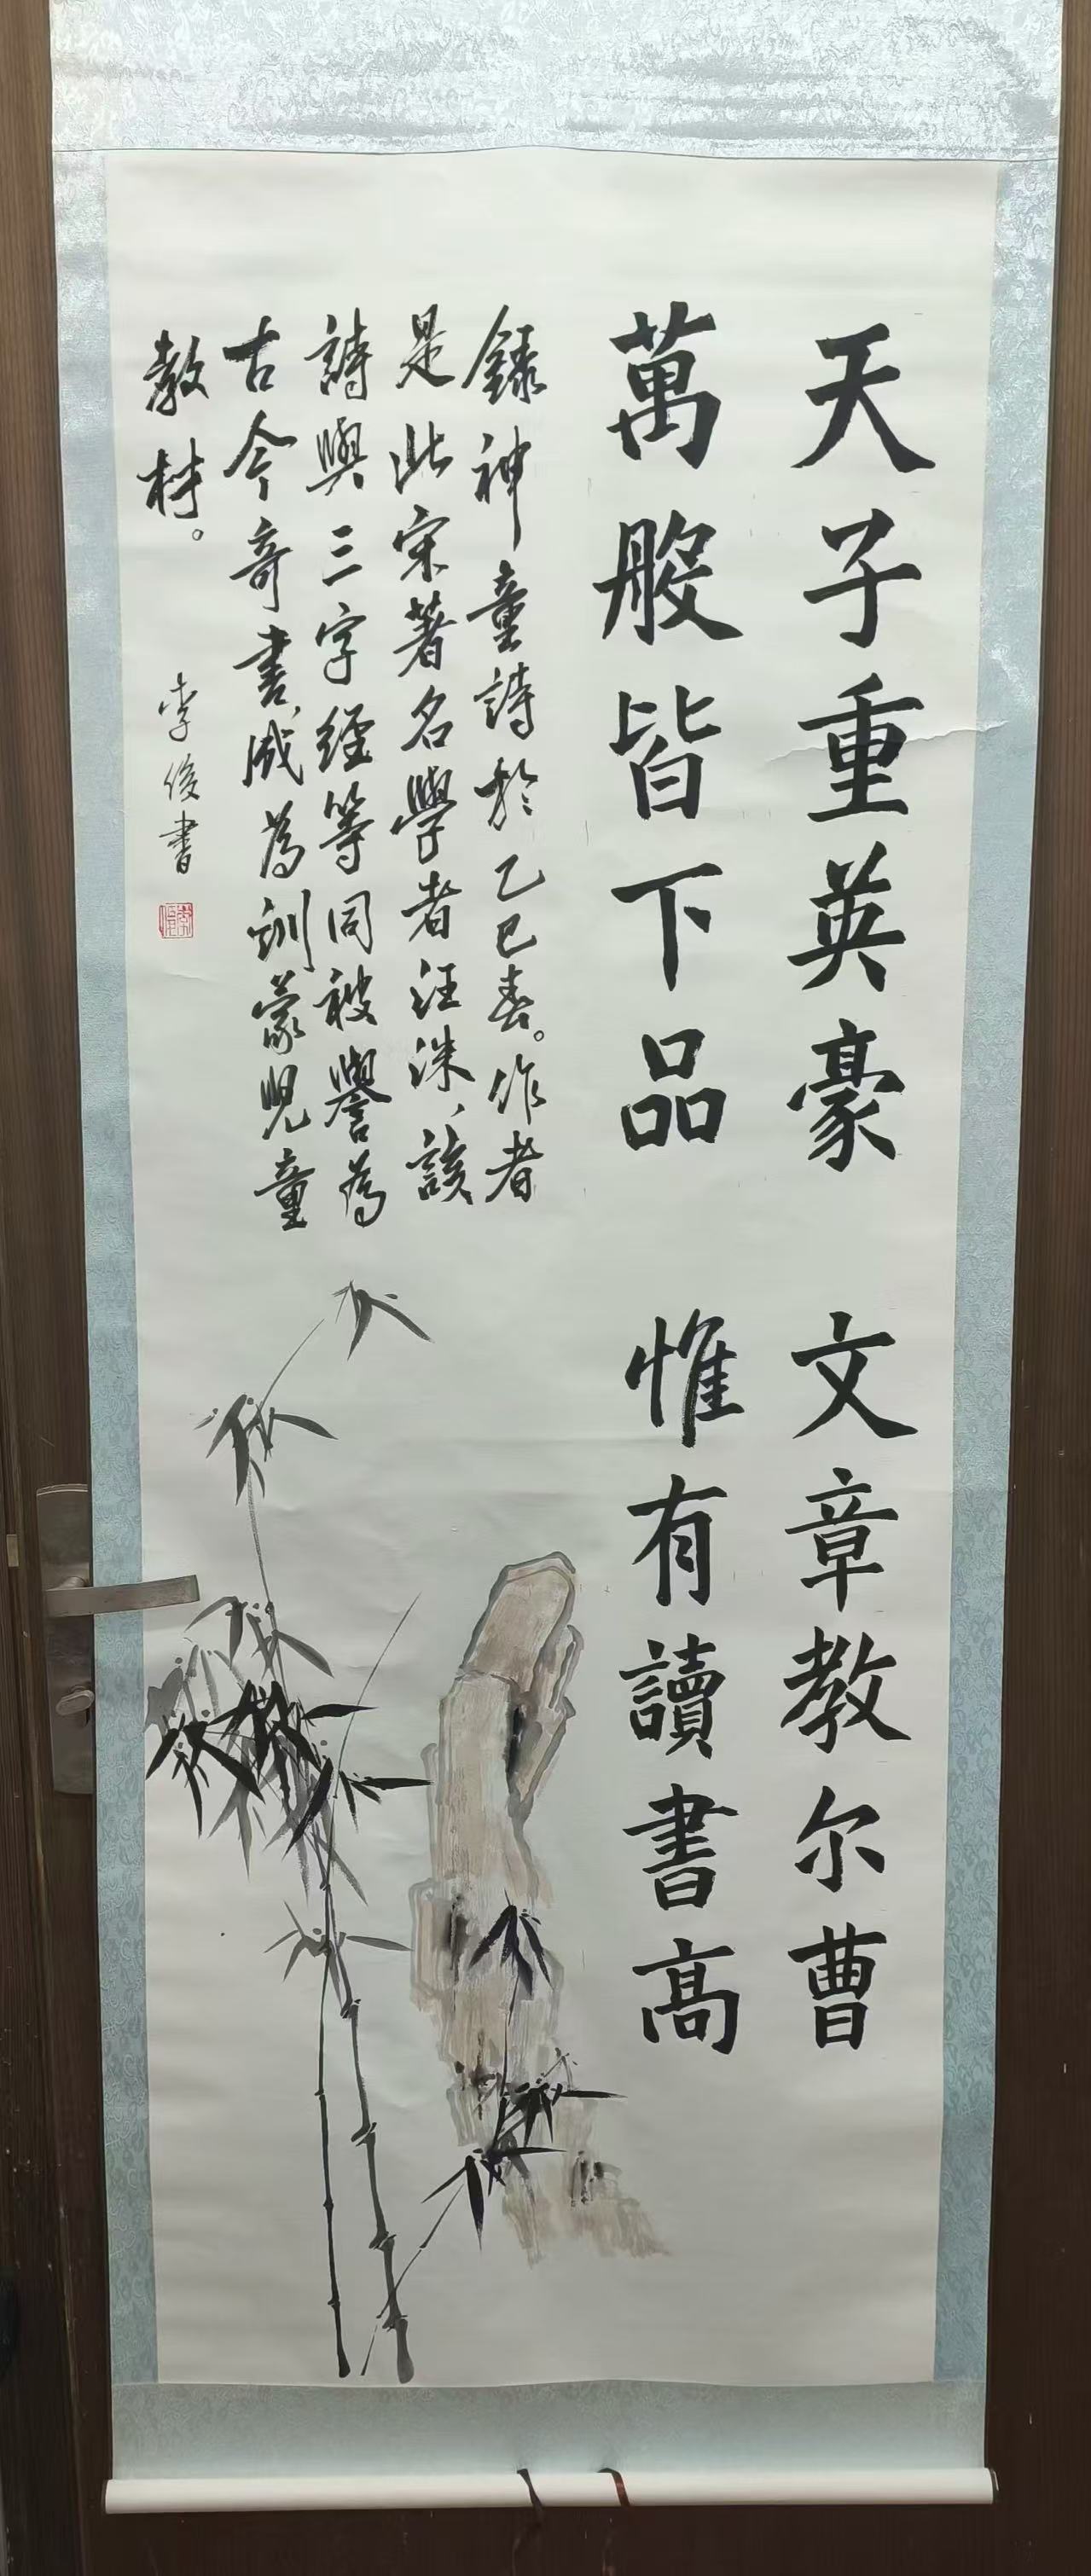 天子重英豪 文章教尔曹
萬般皆下品 惟有讀書高
錄神童詩於乙巳春。作者
是北宋著名學者汪洙、該
詩與三字經等同被譽為
古今奇書、成為訓蒙兒童
教材。
李俊書